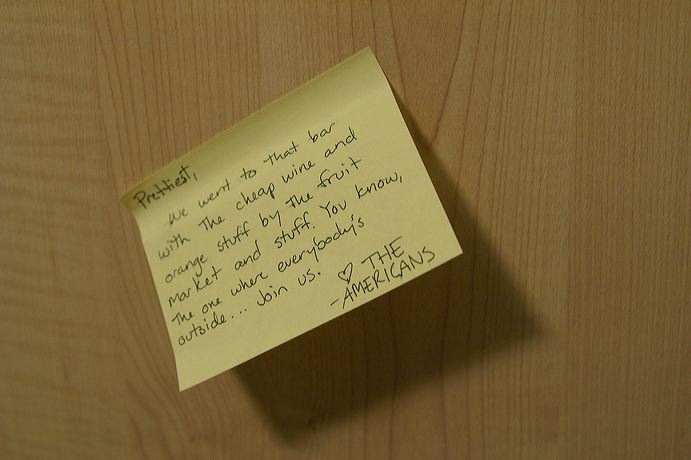 Prettiest,
We went to that bar
with the cheap wine and
orange stuff by the fruit
market and stuff. You know,
the one where everybody's
outside... Join us.
♡ THE
-AMERICANS